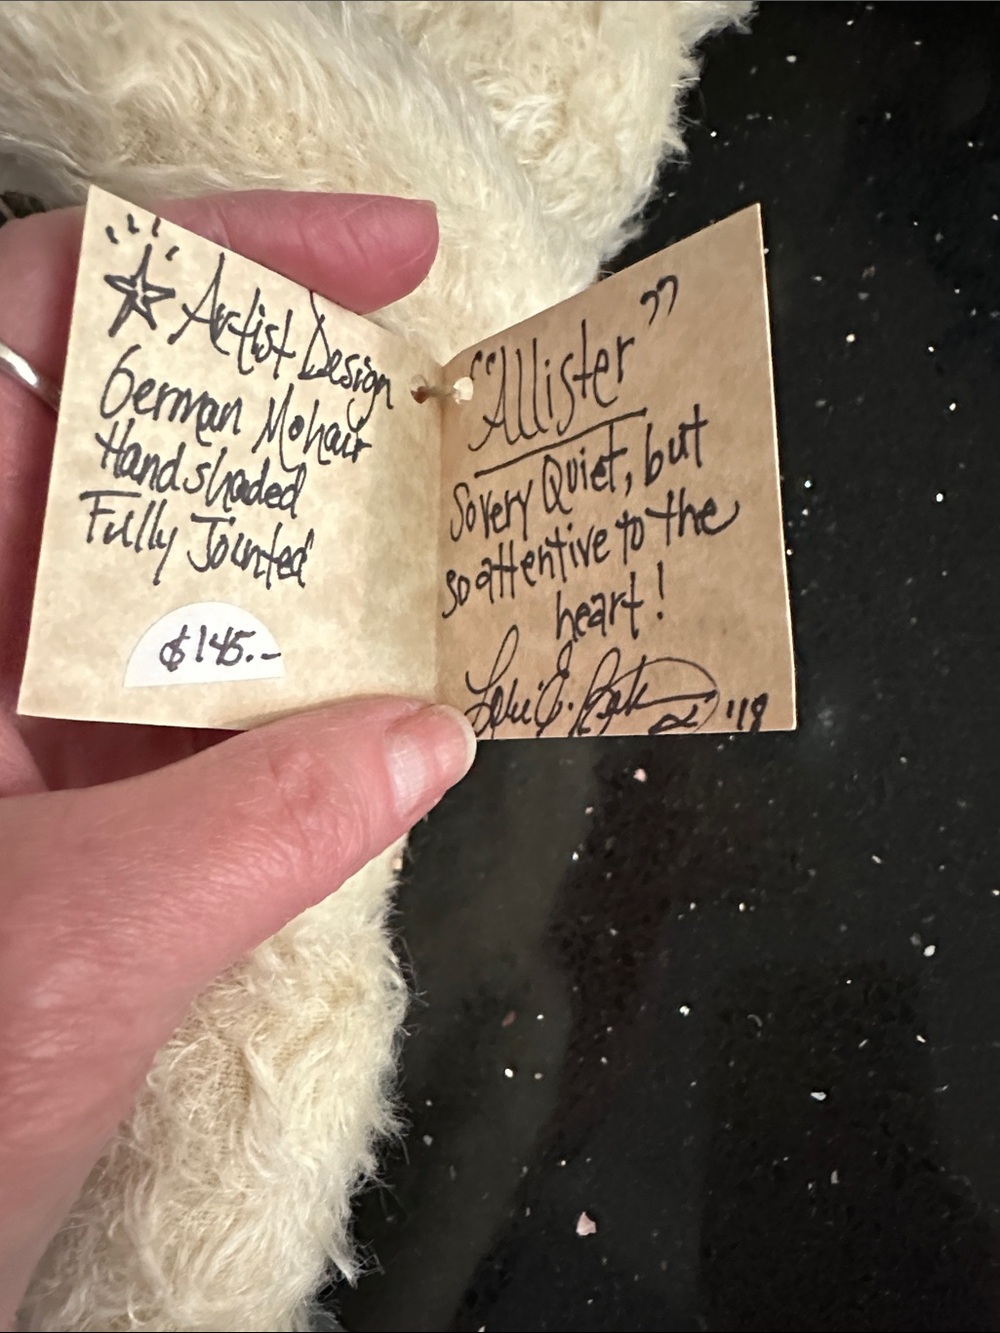 Artist Design
German Mohair
Handshaded
Fully Jointed
$145.-
"Allister"
So very Quiet, but
so attentive to the
heart!
Lori E. '18